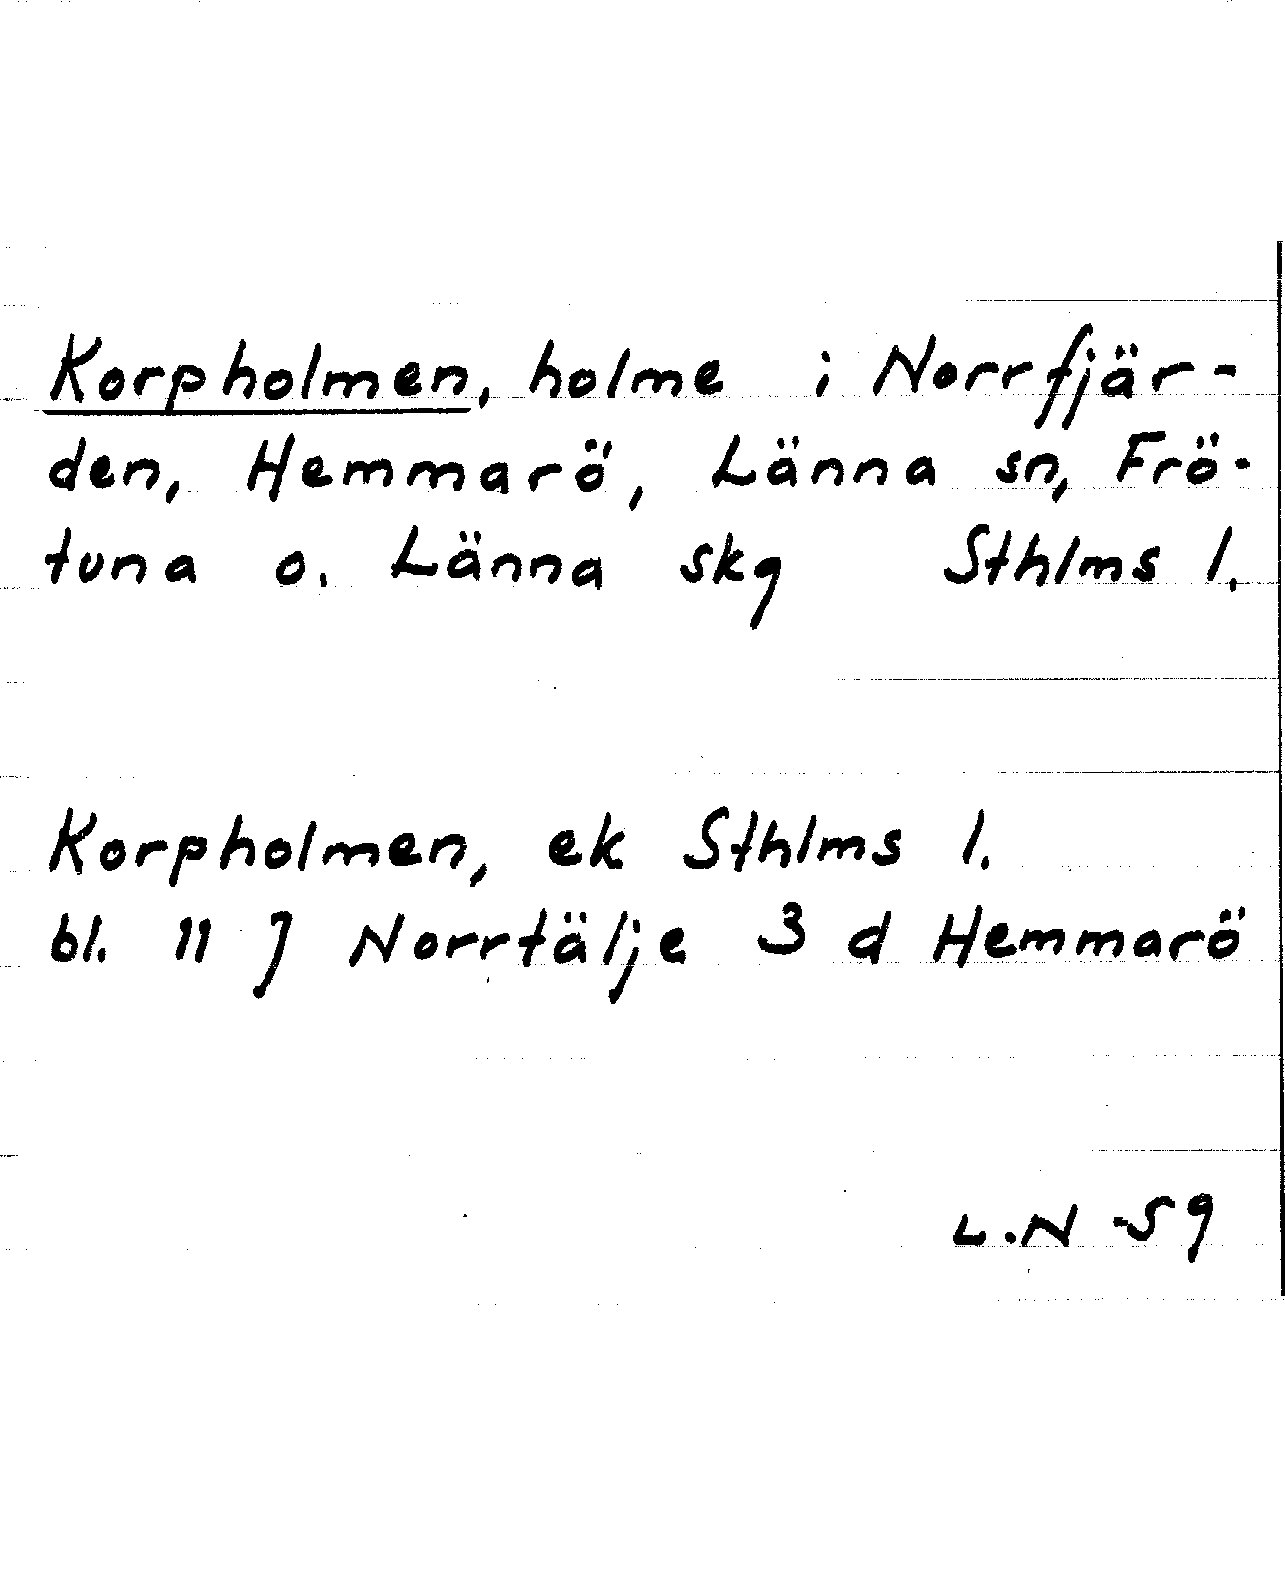 Korpholmen, holme i Norrfjär-
den, Hemmarö, Länna sn, Frö-
tuna o. Länna skg Sthlms l.
Korpholmen, ek Sthlms l.
bl. 11 J Norrtälje 3 d Hemmarö
L.N -59